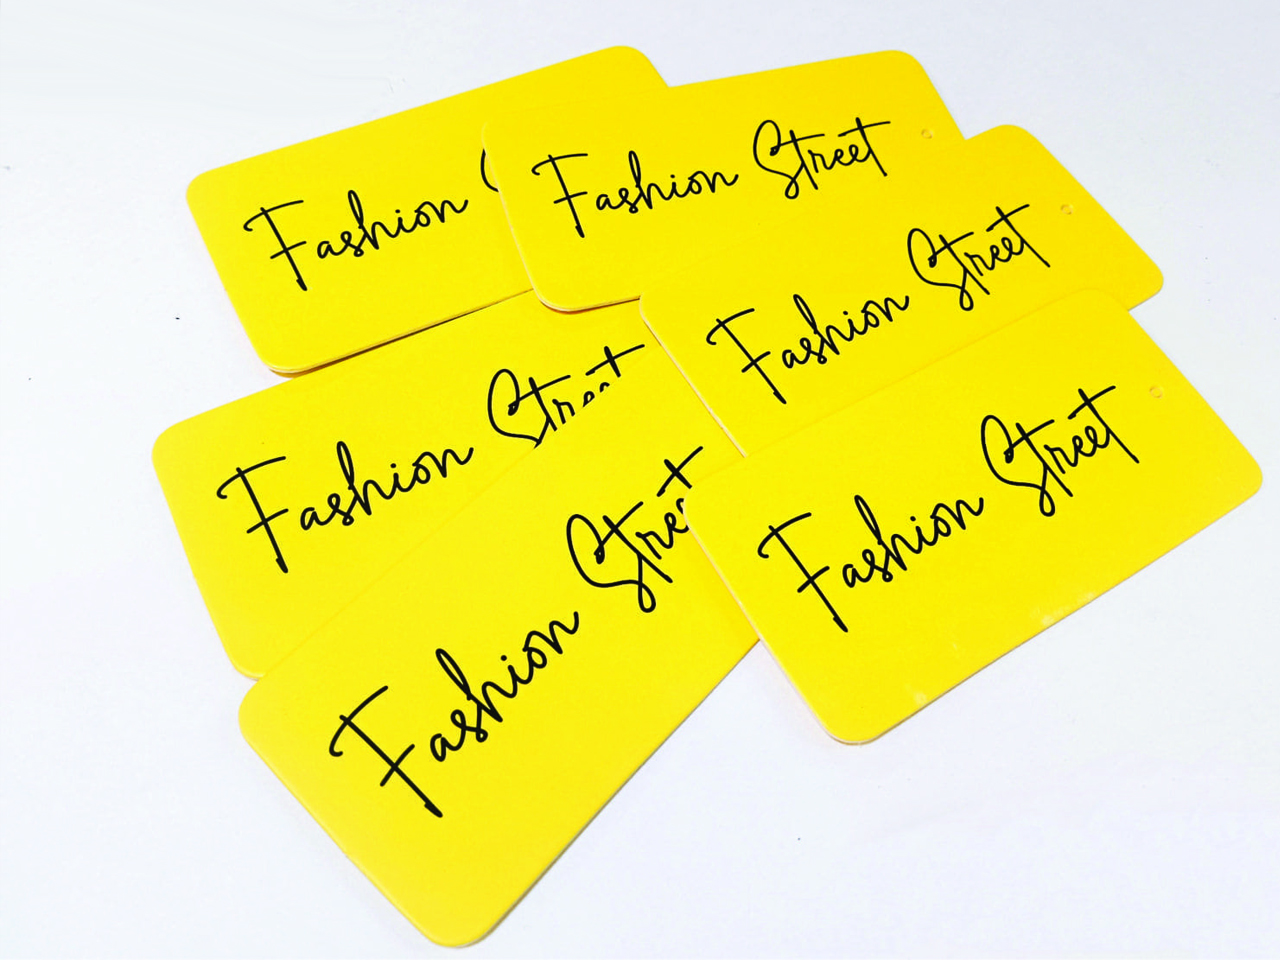 Fashion
Fashion Street
Fashion Street
Fashion Street
Fashion Street
Fashion Street